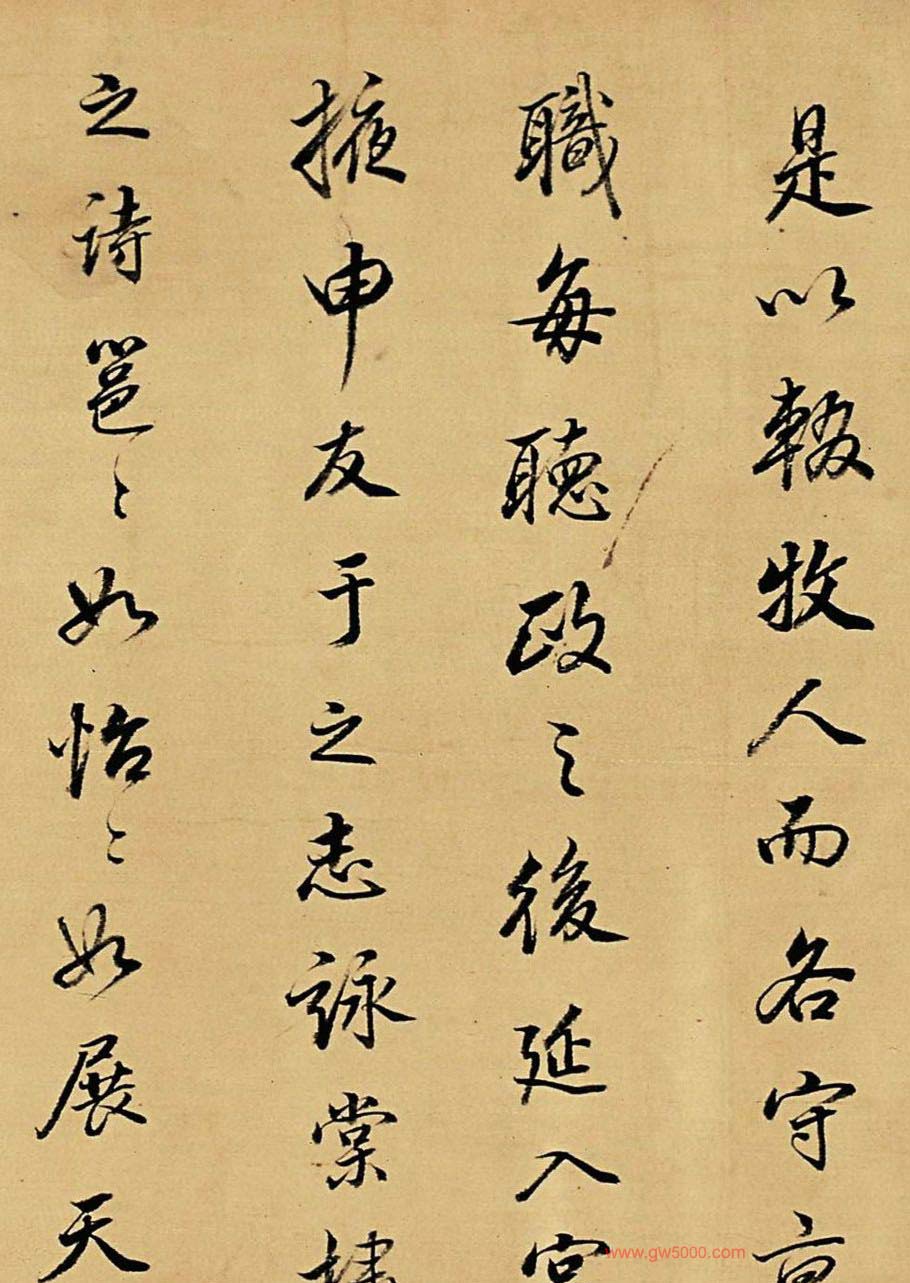 是以輟牧人而各守京
職每聽政之後延入宮
掖申友于之志詠棠棣
之詩邕〻如怡〻如展天
www.gw5000.com